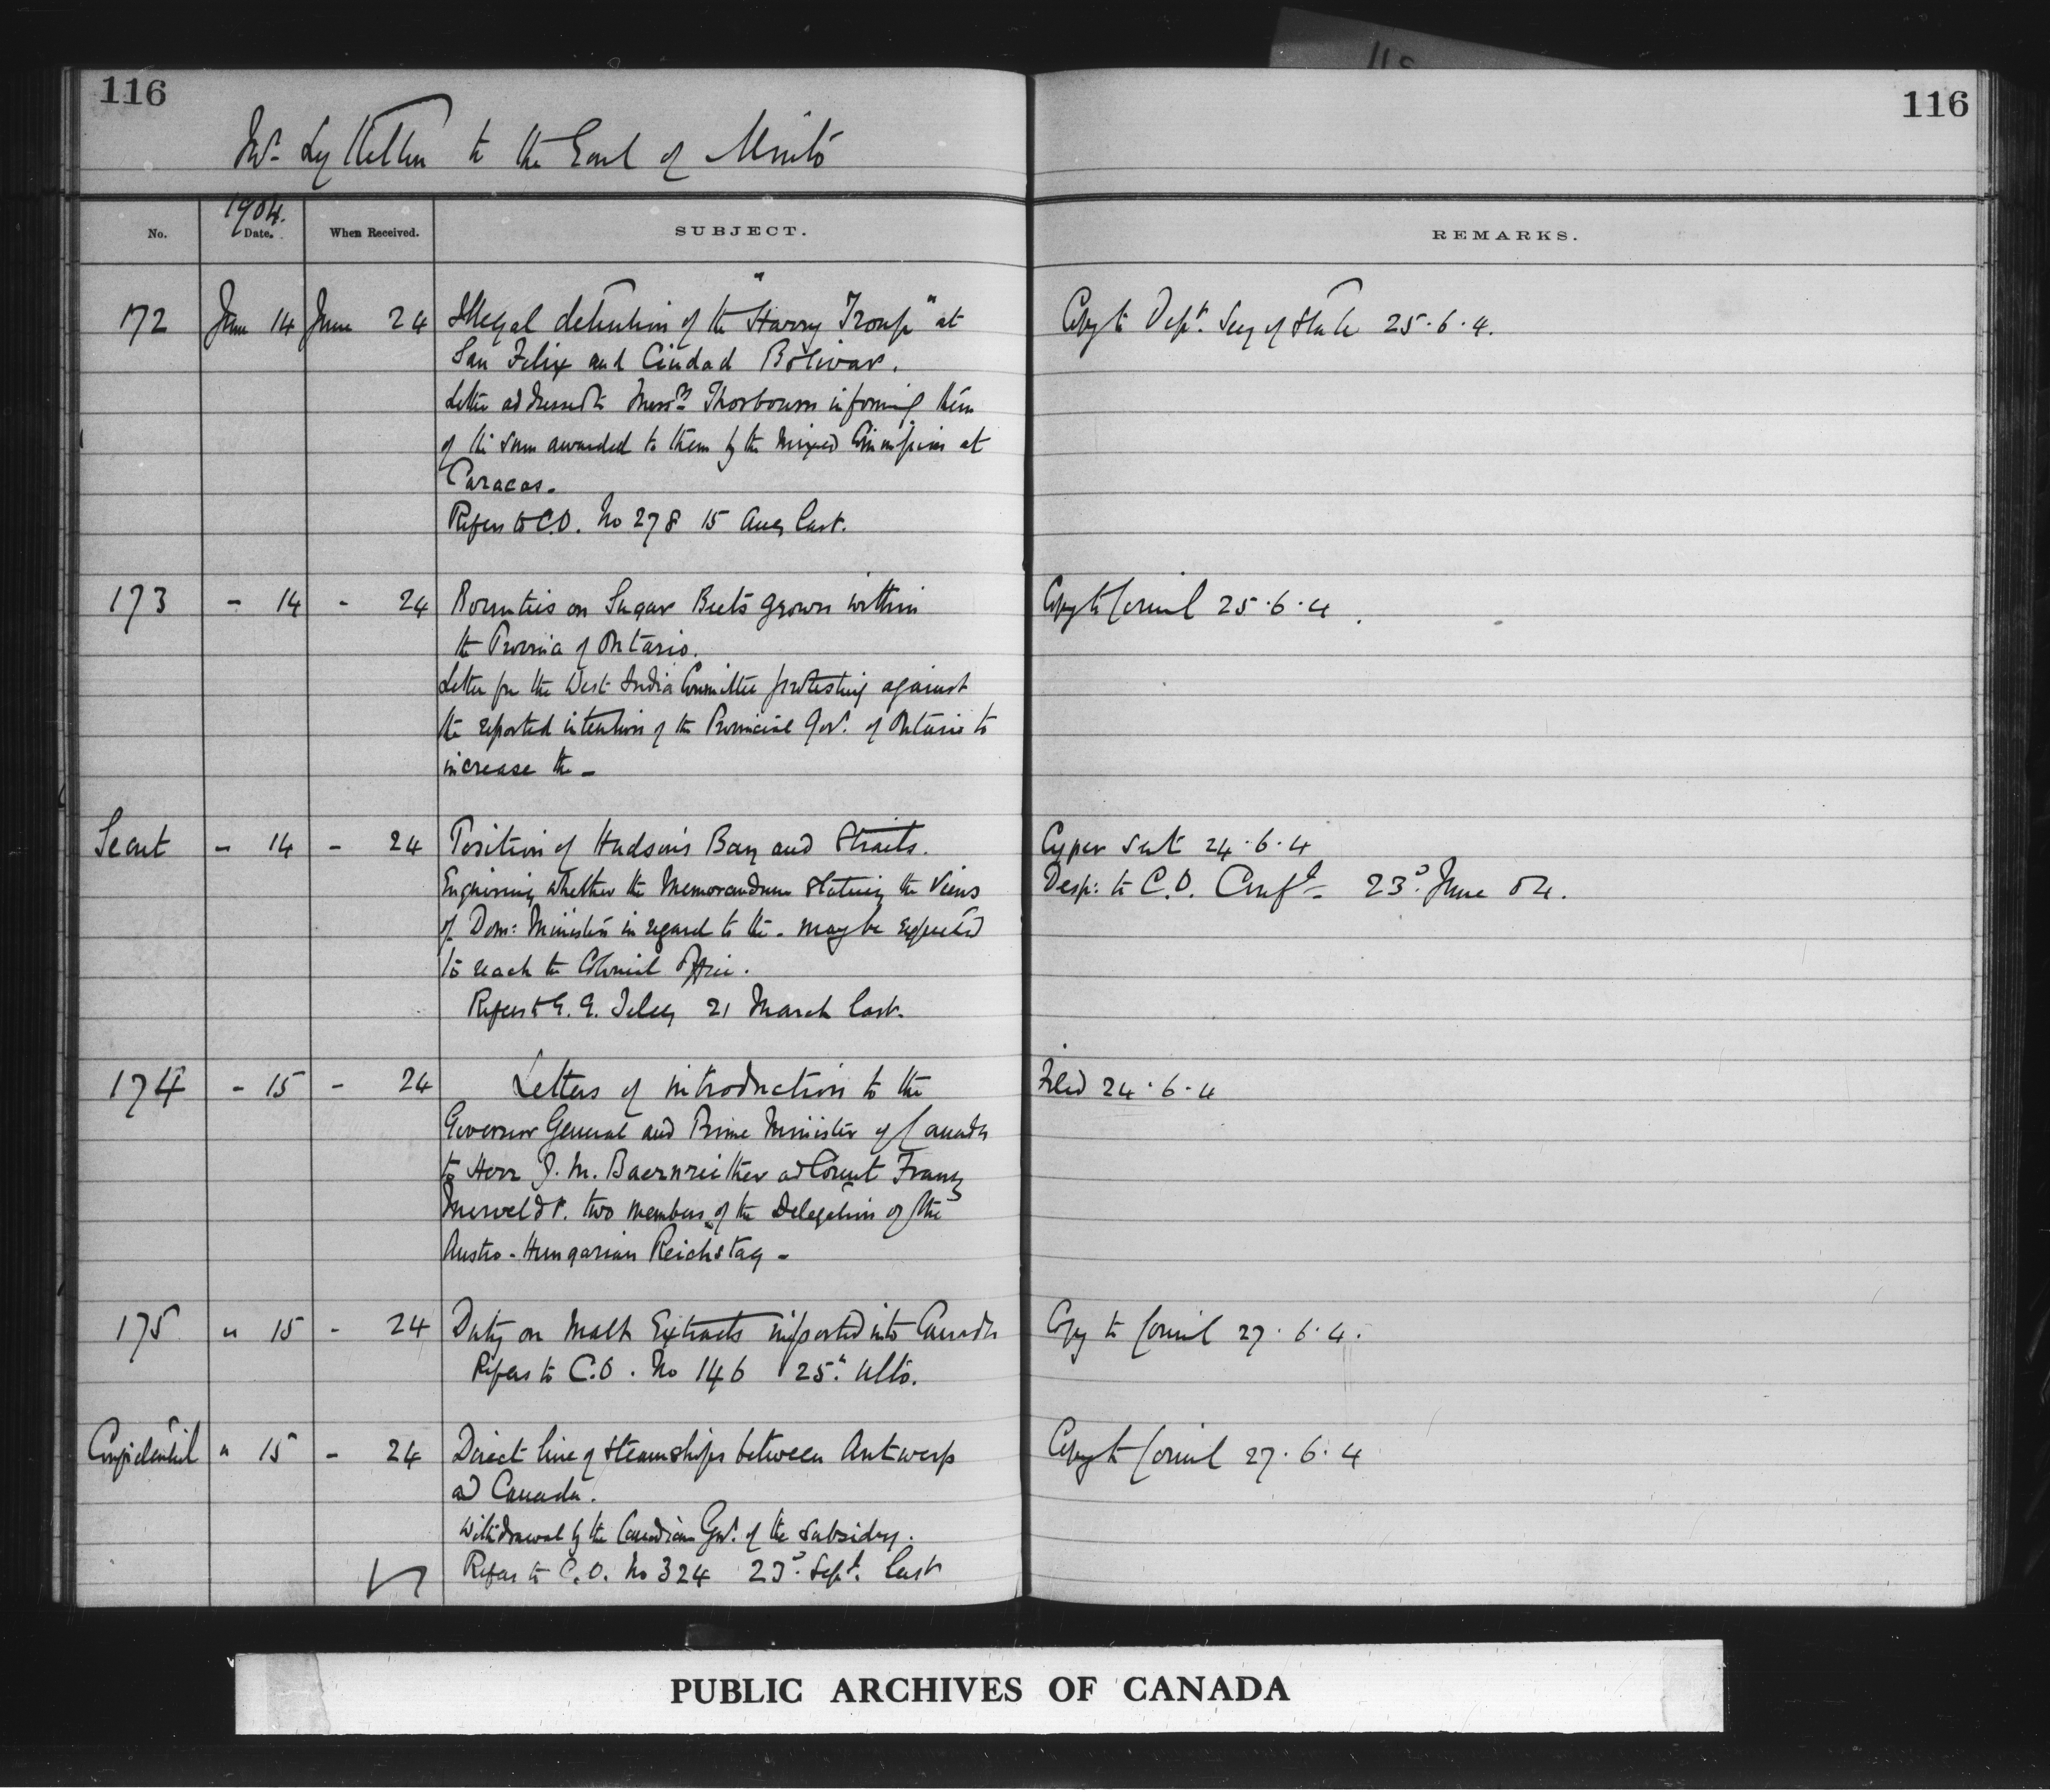 116
116
Mr. Lyttelton to the Earl of Minto
1904.
No. Date. When Received. SUBJECT. REMARKS.
172 June 14 June 24 Illegal detention of the "Harry Troup" at Copy to Dept. Secy of State 25.6.4.
San Felix and Ciudad Bolivar.
Letter addressed to Messrs Thorbourn informing them
of the sum awarded to them by the Mixed Commission at
Caracas.
Refers to C.O. No 278 15 Aug last.
173 - 14 - 24 Bounties on Sugar Beets grown within Copy to Council 25.6.4.
the Province of Ontario.
Letter fm the West India Committee protesting against
the reported intention of the Provincial Govt. of Ontario to
increase the -
Secret - 14 - 24 Position of Hudson's Bay and Straits. Cyper sent 24.6.4
Enquiring whether the Memorandum stating the views Desp: to C.O. Confl- 23d June 04.
of Dom: Ministers in regard to the - may be expected
to reach the Colonial Office.
Refers to G.G. Teleg 21 March last.
174 - 15 - 24 Letters of introduction to the Filed 24.6.4
Governor General and Prime Minister of Canada
to Herr J. M. Baernreither ad Count Franz
Merveldt. two members of the Delegation of the
Austro-Hungarian Reichstag -
175 " 15 - 24 Duty on Malt Extracts imported into Canada Copy to Council 27.6.4.
Refers to C.O. No 146 25th ulto.
Confidential " 15 - 24 Direct line of steamships between Antwerp Copy to Council 27.6.4
ad Canada.
Withdrawal by the Canadian Govt. of the subsidy.
Refers to C.O. No 324 23d Sept. last
PUBLIC ARCHIVES OF CANADA